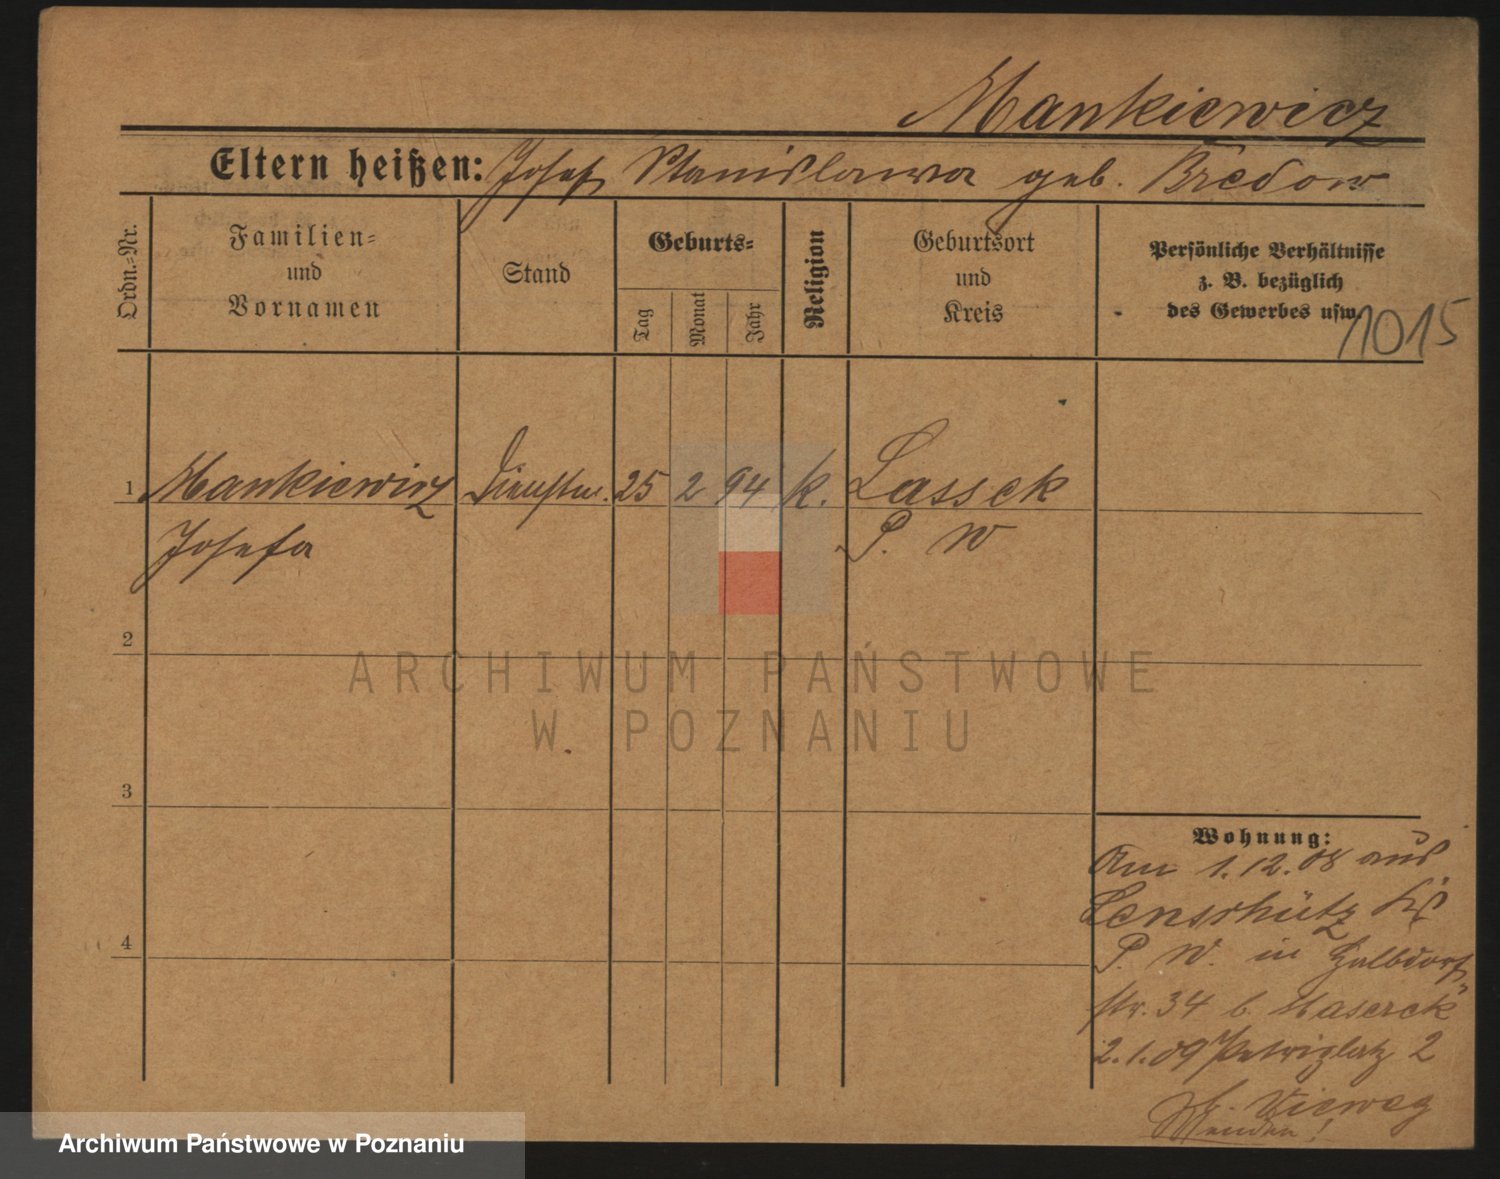 Mankiewicz
Eltern heißen: Josef Stanislawa geb. Bredow
Ordn.-Nr.
Familien-
und
Vornamen
Stand
Geburts-
Tag
Monat
Jahr
Religion
Geburtsort
und
Kreis
Persönliche Verhältnisse
z. B. bezüglich
des Gewerbes usw.
1015
1 Mankiewicz Dienstm. 25 2 94 k. Lassek
Josefa P. W
2
3
4
Wohnung:
Am 1.12.08 aus
Lenschütz Krs
P. W. in Halbdorf-
str. 34 b. Haserck
2.1.09 Petriplatz 2
b. Vieweg
ARCHIWUM PAŃSTWOWE
W POZNANIU
Archiwum Państwowe w Poznaniu